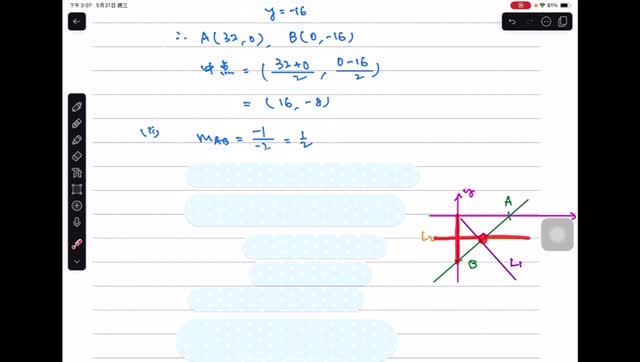 下午3:07 5月21日 週三
81%
y = -16
∴ A(32,0), B(0,-16)
中点 = (32+0/2, 0-16/2)
= (16,-8)
(ii) mAB = -1/-2 = 1/2
y
A
L2
B
L1